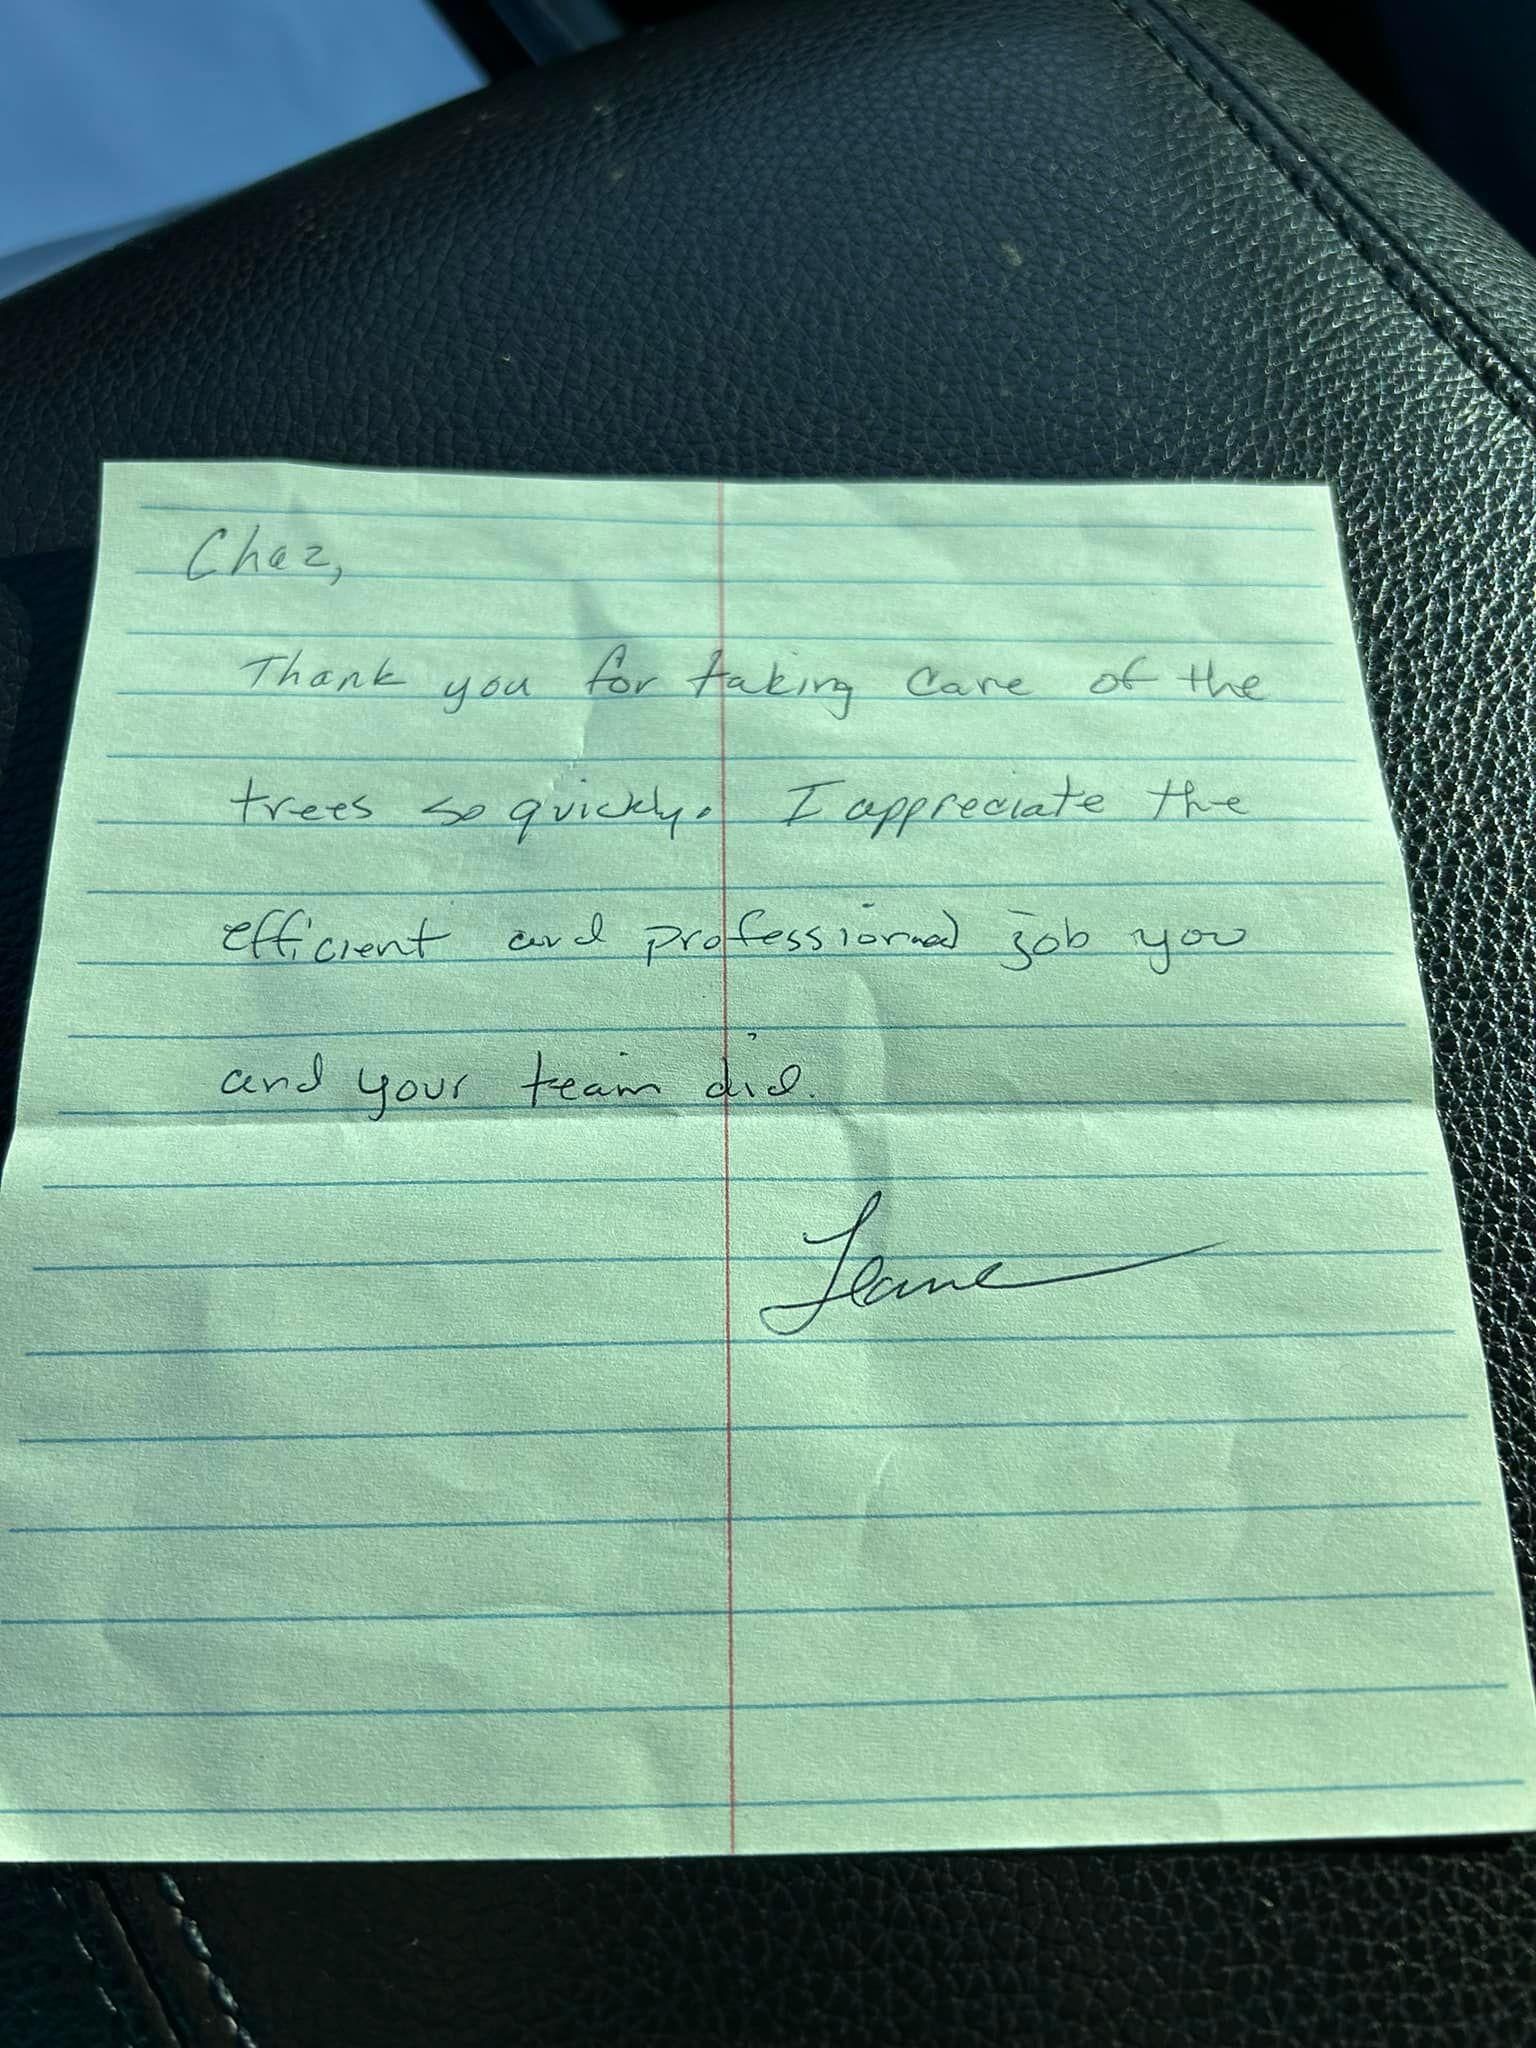 Chaz,
Thank you for taking care of the
trees so quickly. I appreciate the
efficient and professional job you
and your team did.